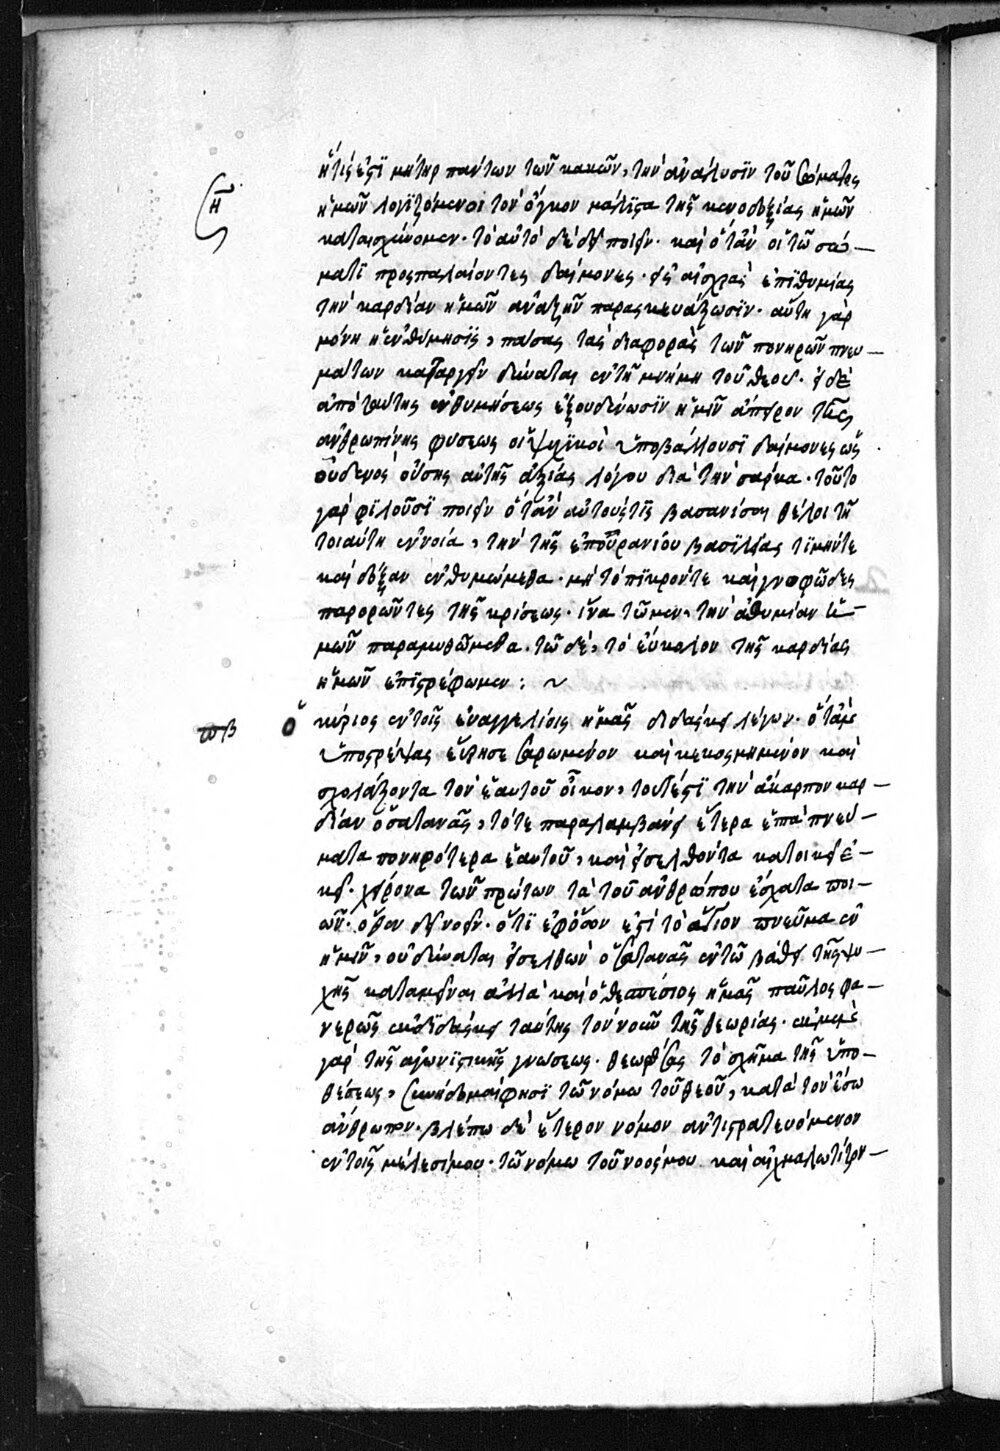 ἥτίς ἐστϊ μήτηρ πάντων τῶν κακῶν, τὴν ἀνάλυσϊν τοῦ σώματος
ἡμῶν λογϊζόμενοι τὸν ὄγκον μάλϊστα τῆς κενοδοξίας ἡμῶν
καταισχύνομεν· τὸ αὐτὸ δὲ δεῖ ποιεῖν· καὶ ὅτἂν οἱ τῶ σώ–
ματϊ προςπαλαίοντες δαίμονες· εἰς αἰσχρὰς ἐπϊθυμίας
τὴν καρδίαν ἡμῶν ἀναζῆν παρασκευάζωσϊν· αὕτη γὰρ
μόνη ἡ ἐνθύμησϊς, πάσας τὰς διαφορὰς τῶν πονηρῶν πνευ–
μάτων καταργεῖν δύναται ἐν τῆ μνήμη τοῦ θεοῦ· εἰ δὲ
ἀπὸ ταύτης ἐνθυμήσεως ἐξουδένωσϊν ἡμῖν ἄπειρον τῆς
ἀνθρωπίνης φύσεως οἱ ψυχϊκοὶ ὑποβάλλουσϊ δαίμονες ὡς
οὐδενὸς οὔσης αὐτῆς ἀξίας λόγου διὰ τὴν σάρκα· τοῦτο
γὰρ φϊλοῦσϊ ποιεῖν ὅτἂν αὐτούς τϊς βασανίσαι θέλοι τῆ
τοιαύτη ἐννοία, τὴν τῆς ἐπουρανίου βασϊλείας τϊμήν τε
καὶ δόξαν ἐνθυμώμεθα· μὴ τὸ πϊκρόν τε καὶ γνοφῶδες
παρορῶντες τῆς κρίσεως· ἵνα τῶ μὲν, τὴν ἀθυμίαν ἡ–
μῶν παραμυθώμεθα. τῶ δὲ, τὸ εὔκολον τῆς καρδίας
ἡμῶν ἐπϊστρέφωμεν: ~
πβ Ὁ κύριος ἐν τοῖς εὐαγγελίοις ἡμᾶς διδάσκει λέγων· ὅτἂν
ὑποστρέψας εὕρησει σαρωμένον καὶ κεκοσμημένον καὶ
σχολάζοντα τὸν ἑαυτοῦ οἶκον, τουτέστϊ τὴν ἄκαρπον καρ–
δίαν ὁ σατανᾶς, τότε παραλαμβάνει ἕτερα ἑπτὰ πνεύ–
ματα πονηρότερα ἑαυτοῦ, καὶ εἰσελθόντα κατοικεῖ ἐ–
κεῖ· χείρονα τῶν πρώτων τὰ τοῦ ἀνθρώπου ἔσχατα ποι–
ῶν· ὅθεν δεῖ νοεῖν· ὅτϊ ἐφόσον ἐστὶ τὸ ἅγϊον πνεῦμα ἐν
ἡμῖν, οὐ δύναται εἰσελθὼν ὁ σατανᾶς ἐν τῶ βάθει τῆς ψυ–
χῆς καταμεῖναι ἀλλὰ καὶ ὁ θεσπέσιος ἡμᾶς παῦλος φα–
νερῶς ἐκδϊδάσκει ταύτης τὸν νοῦν τῆς θεωρίας·
γὰρ τῆς ἀγωνϊστικῆς γνώσεως· θεωρήσας τὸ σχῆμα τῆς ὑπο–
θέσεως, συνήδομαι φησϊ τῶ νόμω τοῦ θεοῦ, κατὰ τὸν ἔσω
ἄνθρωπον· βλέπω δὲ ἕτερον νόμον ἀντιστρατευόμενον
ἐν τοῖς μέλεσί μου· τῶ νόμω τοῦ νοός μου καὶ αἰχμαλωτίζον–